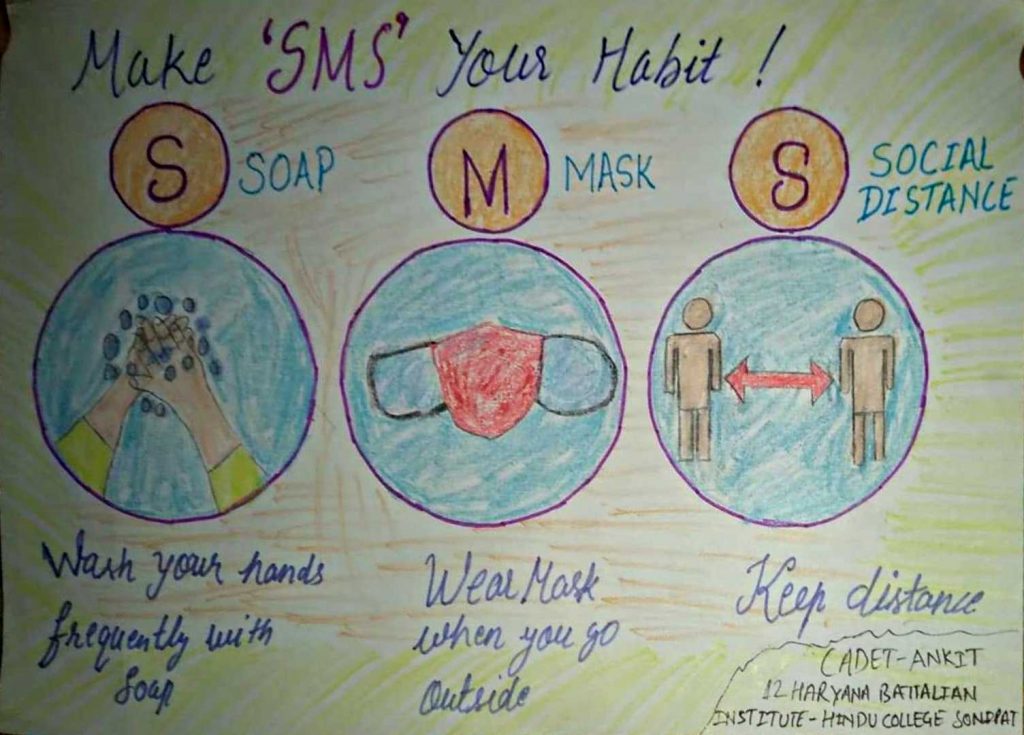 Make 'SMS' Your Habit !
S SOAP
M MASK
S SOCIAL
DISTANCE
Wash your hands
frequently with
Soap
Wear Mask
when you go
Outside
Keep distance
CADET-ANKIT
12 HARYANA BATTALIAN
INSTITUTE-HINDU COLLEGE SONIPAT